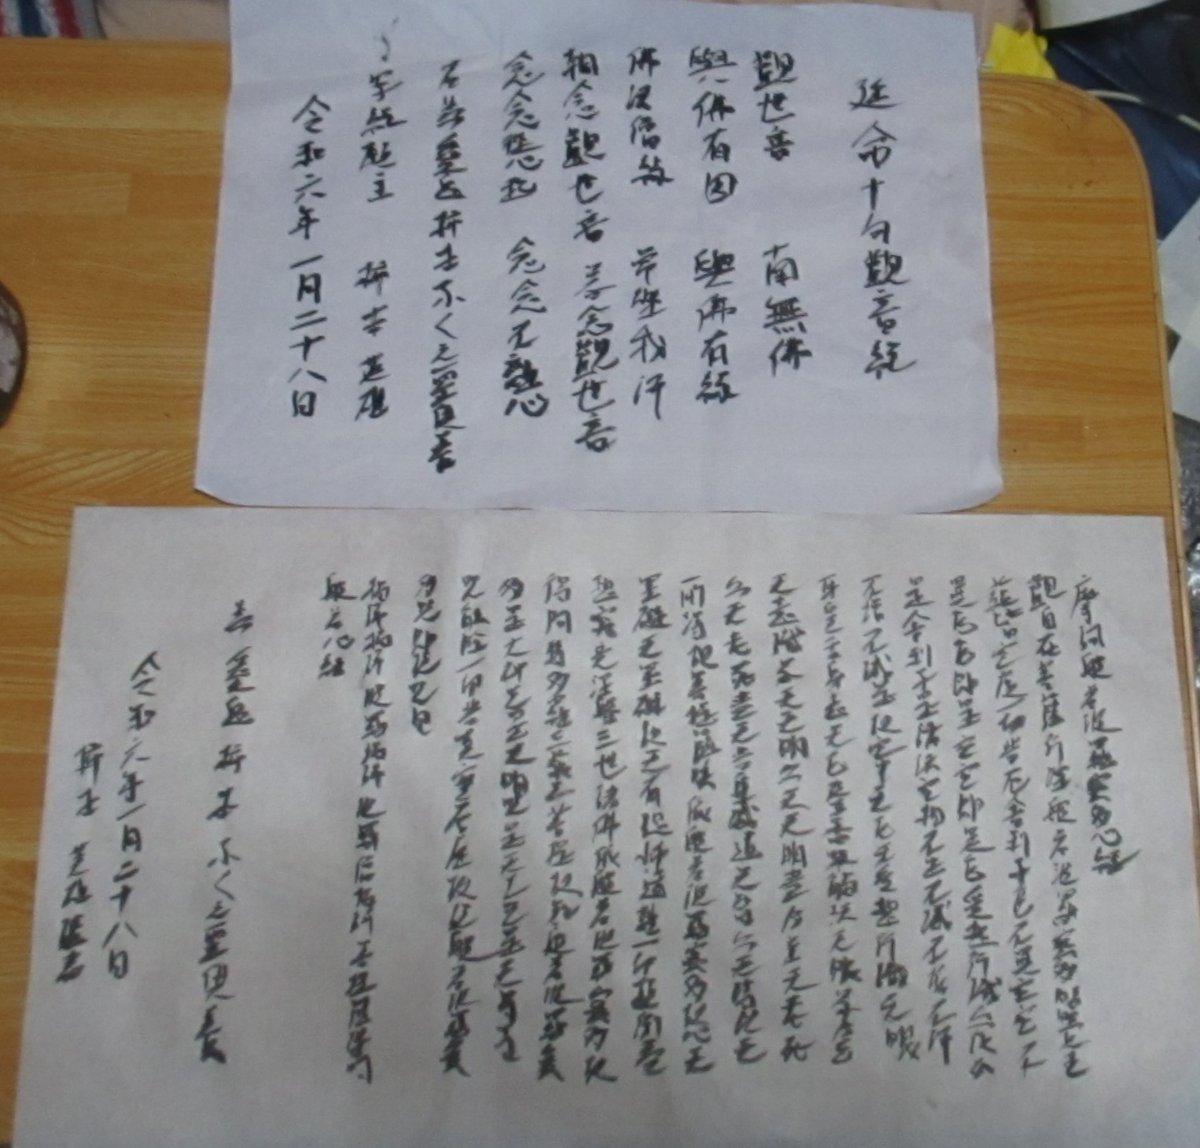 延命十句觀音経
觀世音 南無佛
與佛有因 與佛有縁
佛法僧縁 常楽我浄
朝念觀世音 暮念觀世音
念念從心起 念念不離心
為 之霊具養
写経願主
令和六年一月二十八日
摩訶般若波羅蜜多心経
観自在菩薩行深般若波羅蜜多時照見五
蘊皆空度一切苦厄舍利子色不異空空不
異色色即是空空即是色受想行識亦復如
是舎利子是諸法空相不生不滅不垢不浄
不増不減是故空中无色无受想行識无眼
耳鼻舌身意无色声香味触法无眼界乃至
无意識界无无明亦无无明尽乃至无老死
亦无老死尽无苦集滅道无智亦无得以无
所得故菩提薩埵依般若波羅蜜多故心无
罣礙无罣礙故无有恐怖遠離一切顛倒夢
想究竟涅槃三世諸佛依般若波羅蜜多故
得阿耨多羅三藐三菩提故知般若波羅蜜
多是大神呪是大明呪是无上呪是无等等
呪能除一切苦真実不虚故説般若波羅蜜
多呪即説呪曰
羯諦羯諦波羅羯諦波羅僧羯諦菩提薩婆訶
般若心経
為 之霊具養
令和六年一月二十八日